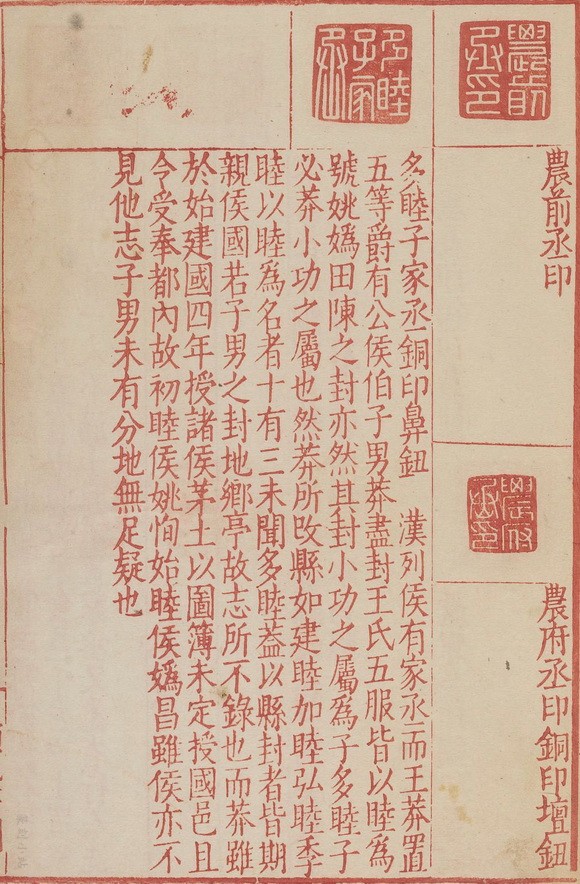 農前丞印
農前丞印
農府丞印
農府丞印銅印壇鈕
多睦子家丞
多睦子家丞銅印鼻鈕　漢列侯有家丞而王莽置
五等爵有公侯伯子男莽盡封王氏五服皆以睦爲
號姚嬀田陳之封亦然其封小功之屬爲子多睦子
必莽小功之屬也然莽所改縣如建睦加睦弘睦季
睦以睦爲名者十有三未聞多睦葢以縣封者皆期
親侯國若子男之封地鄉亭故志所不錄也而莽雖
於始建國四年授諸侯茅土以圖簿未定授國邑且
令受奉都內故初睦侯姚恂始睦侯嬀昌雖侯亦不
見他志子男未有分地無足疑也